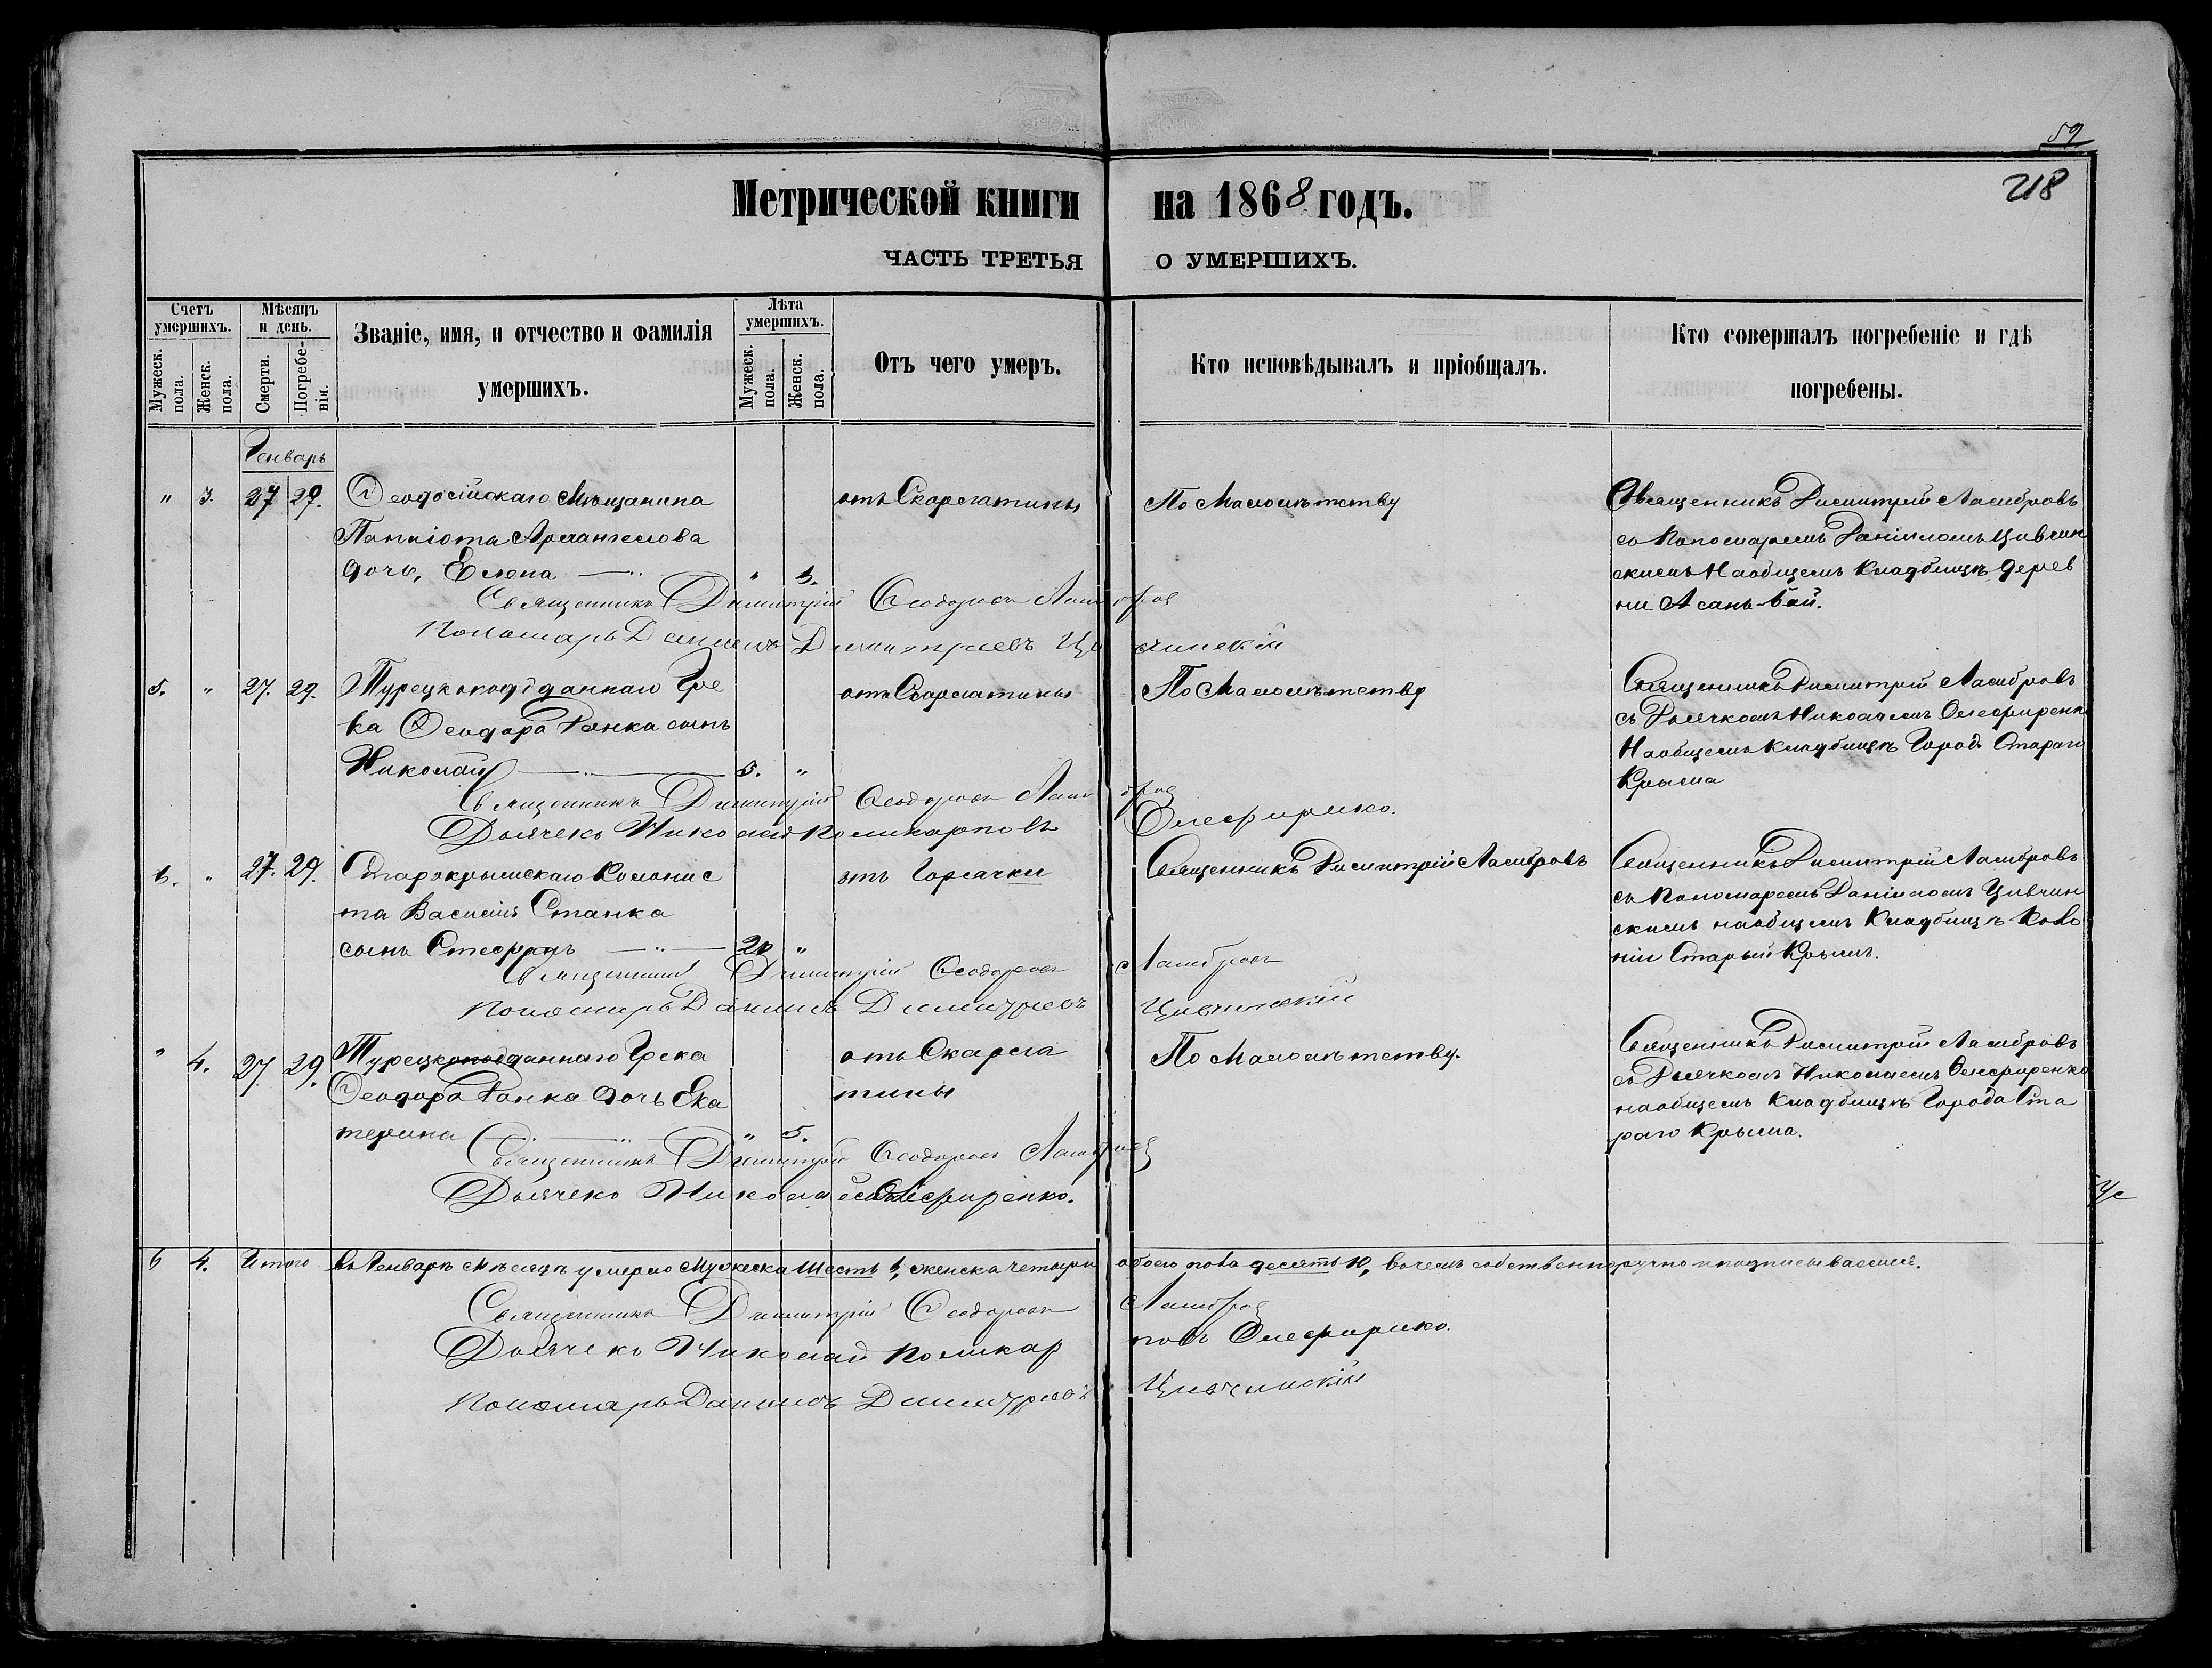 59
218
Метрической книги на 1868 годъ.
ЧАСТЬ ТРЕТЬЯ О УМЕРШИХЪ.
Счетъ умершихъ.
Мужеск. пола.
Женск. пола.
Мѣсяцъ и день.
Смерти.
Погребенія.
Званіе, имя, и отчество и фамилія
умершихъ.
Лѣта умершихъ.
Мужеск. пола.
Женск. пола.
Отъ чего умеръ.
Кто исповѣдывалъ и пріобщалъ.
Кто совершалъ погребеніе и гдѣ
погребены.
Генварь
" 3. 27 29. Ѳеодосійскаго Мѣщанина
Панкіота Архангелова
дочь, Елена " 3.
отъ Скарлатины
По Малолѣтству
Священникъ Димитрій Ламбровъ
съ Пономаремъ Даніиломъ Цивчин
скимъ На общемъ Кладбищѣ дерев
ни Асанъ-бай.
Священникъ Димитрій Ѳеодоровъ Ламбров
Пономарь Даниилъ Димитріевъ Цивчинскій
5. " 27. 29. Турецкоподданнаго Гре
ка Ѳеодора Ранка сынъ
Николай 5. "
отъ Скарлатины
По Малолѣтству
Священникъ Димитрій Ламбровъ
съ Дьячкомъ Николаемъ Олефиренко
На общемъ Кладбищѣ Город. Стараго
Крыма
Священникъ Димитрій Ѳеодоровъ Ламбров
Дьячекъ Николай Поликарповъ Олефиренко.
6. " 27. 29. Старокрымскаго Колонис
та Василія Станка
сынъ Стефанъ 20 "
отъ Горячки
Священникъ Димитрій Ламбровъ
Священникъ Димитрій Ламбровъ
съ Пономаремъ Даніиломъ Цивчин
скимъ на общемъ Кладбищѣ Коло
ніи Старый Крымъ.
Священникъ Димитрій Ѳеодоровъ Ламбровъ
Пономарь Даниилъ Димитріевъ Цивчинскій
" 4. 27. 29. Турецкоподданнаго Грека
Ѳеодора Ранка дочь Ека
терина " 5.
отъ Скарла
тины
По Малолѣтству.
Священникъ Димитрій Ламбровъ
съ Дьячкомъ Николаемъ Олефиренко
на общемъ Кладбищѣ Города Ста
раго Крыма.
Священникъ Димитрій Ѳеодоровъ Ламбров
Дьячекъ Николай Олефиренко.
6 4. Итого въ Генварѣ мѣсяцѣ умерло Мужеска шесть 6, женска четыри обоего пола десять 10, въ чемъ собственноручно и подписываемся.
Священникъ Димитрій Ѳеодоровъ Ламбров
Дьячекъ Николай Поликарповъ Олефиренко.
Пономарь Даниилъ Димитріевъ Цивчинскій